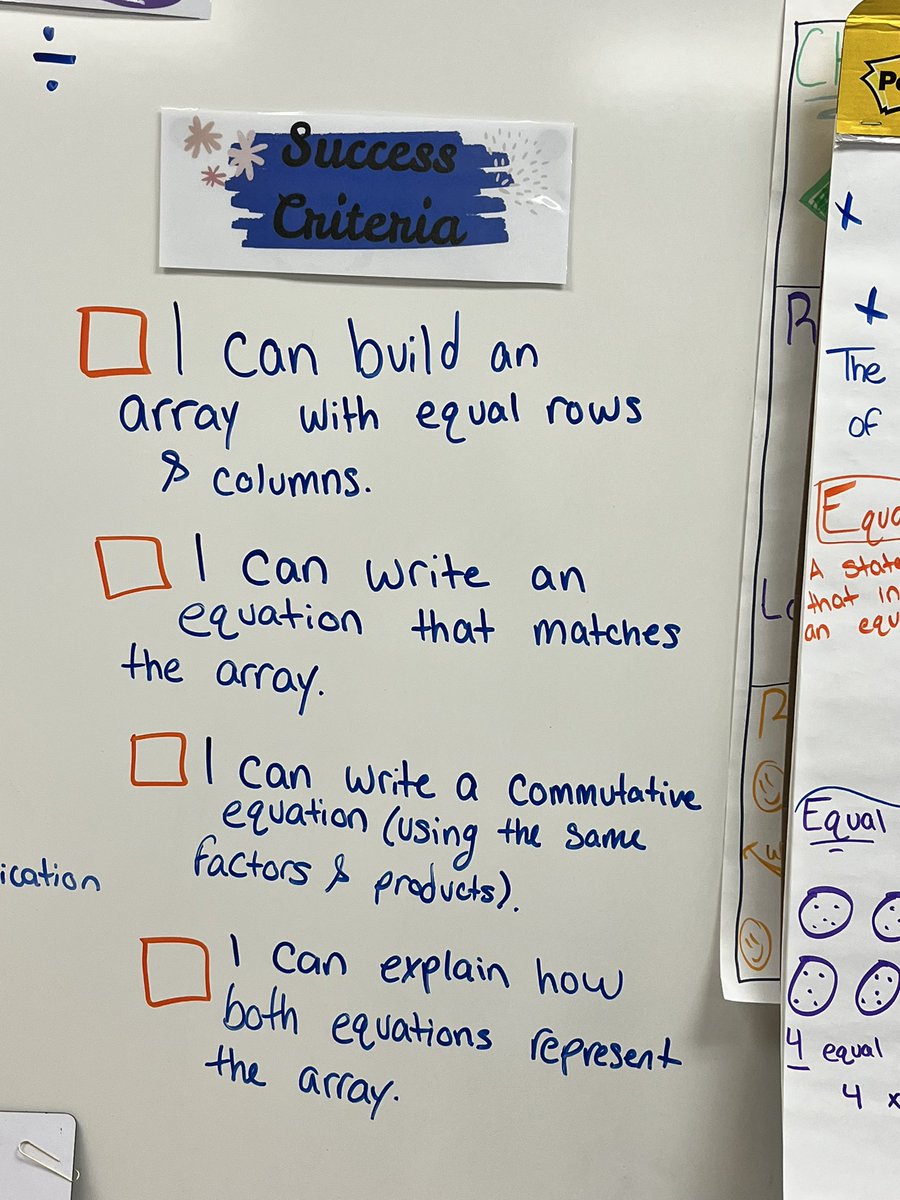 ÷
Success
Criteria
I can build an
array with equal rows
& columns.
I can write an
equation that matches
the array.
I can write a commutative
equation (using the same
factors & products).
I can explain how
both equations represent
the array.
x
+
The
of
A
that
an
Equal
4 equal
4 x